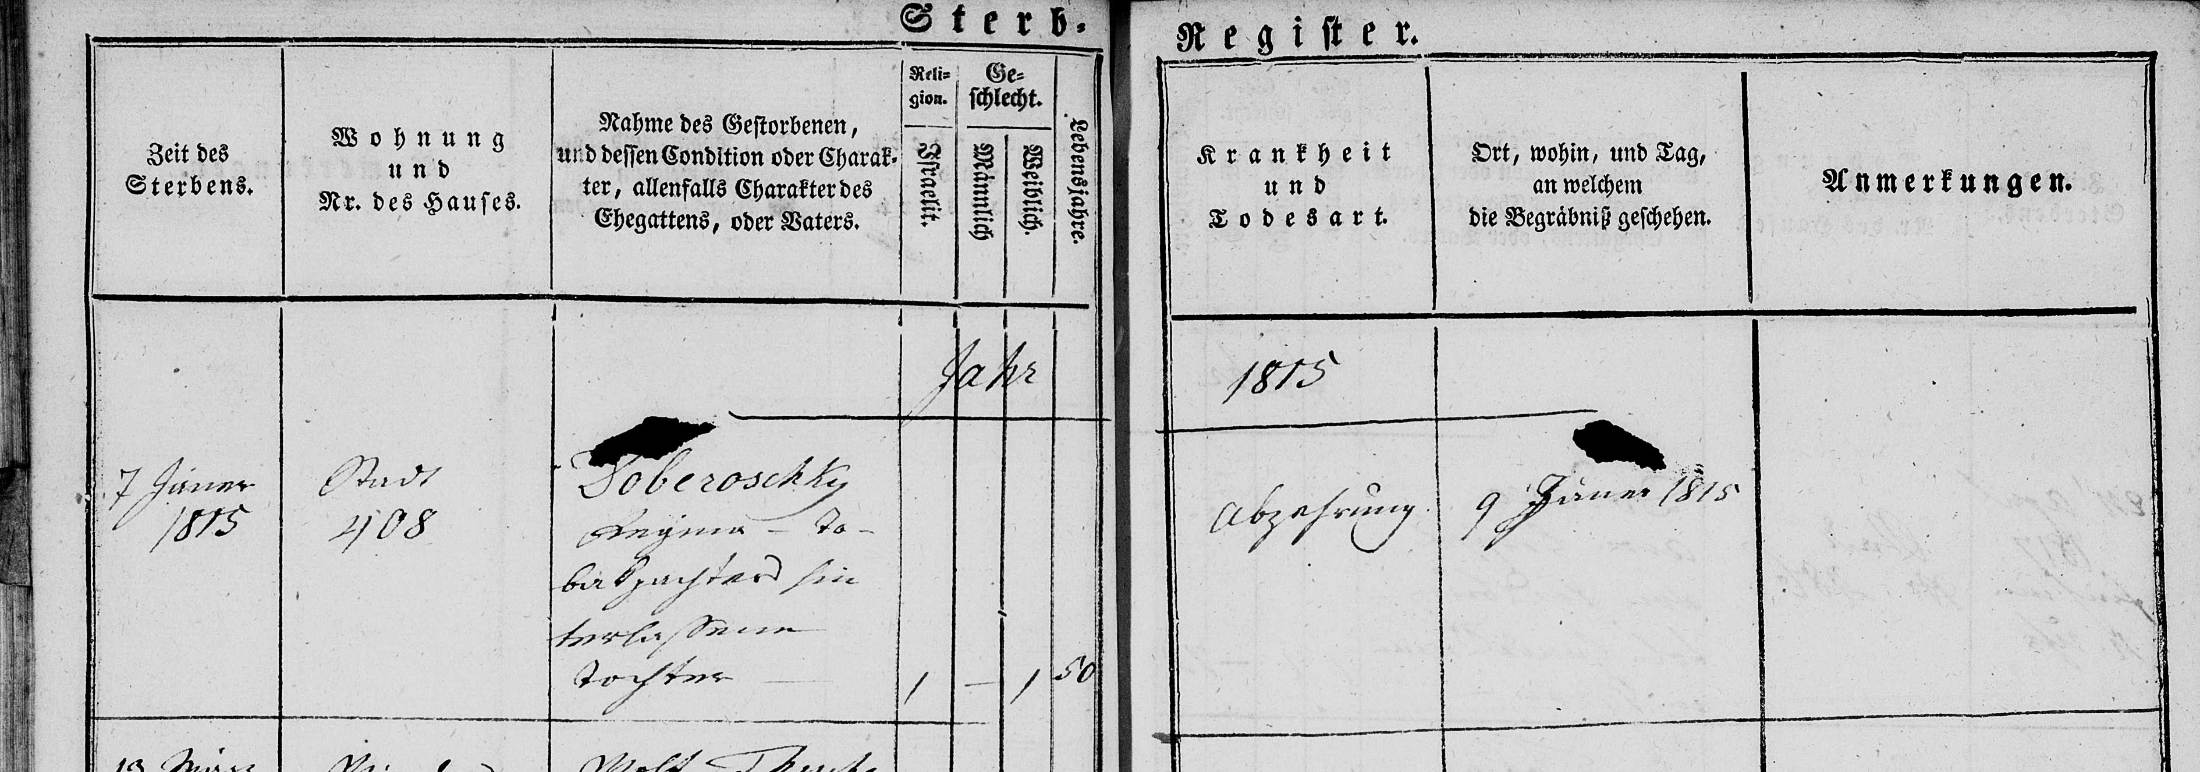 Sterb-Register.
Zeit des
Sterbens.
Wohnung
und
Nr. des Hauses.
Nahme des Gestorbenen,
und dessen Condition oder Charak-
ter, allenfalls Charakter des
Ehegattens, oder Vaters.
Reli-
gion.
Israelit.
Ge-
schlecht.
Männlich
Weiblich.
Lebensjahre.
Krankheit
und
Todesart.
Ort, wohin, und Tag,
an welchem
die Begräbniß geschehen.
Anmerkungen.
Jahr 1815
7 Jäner
1815
Stadt
408
Doberoschky
Regina - Ta-
bakpachters hin
terlassene
Tochter
1 — 1 50
Abzehrung
9 Jäner 1815
13 März
Wolf